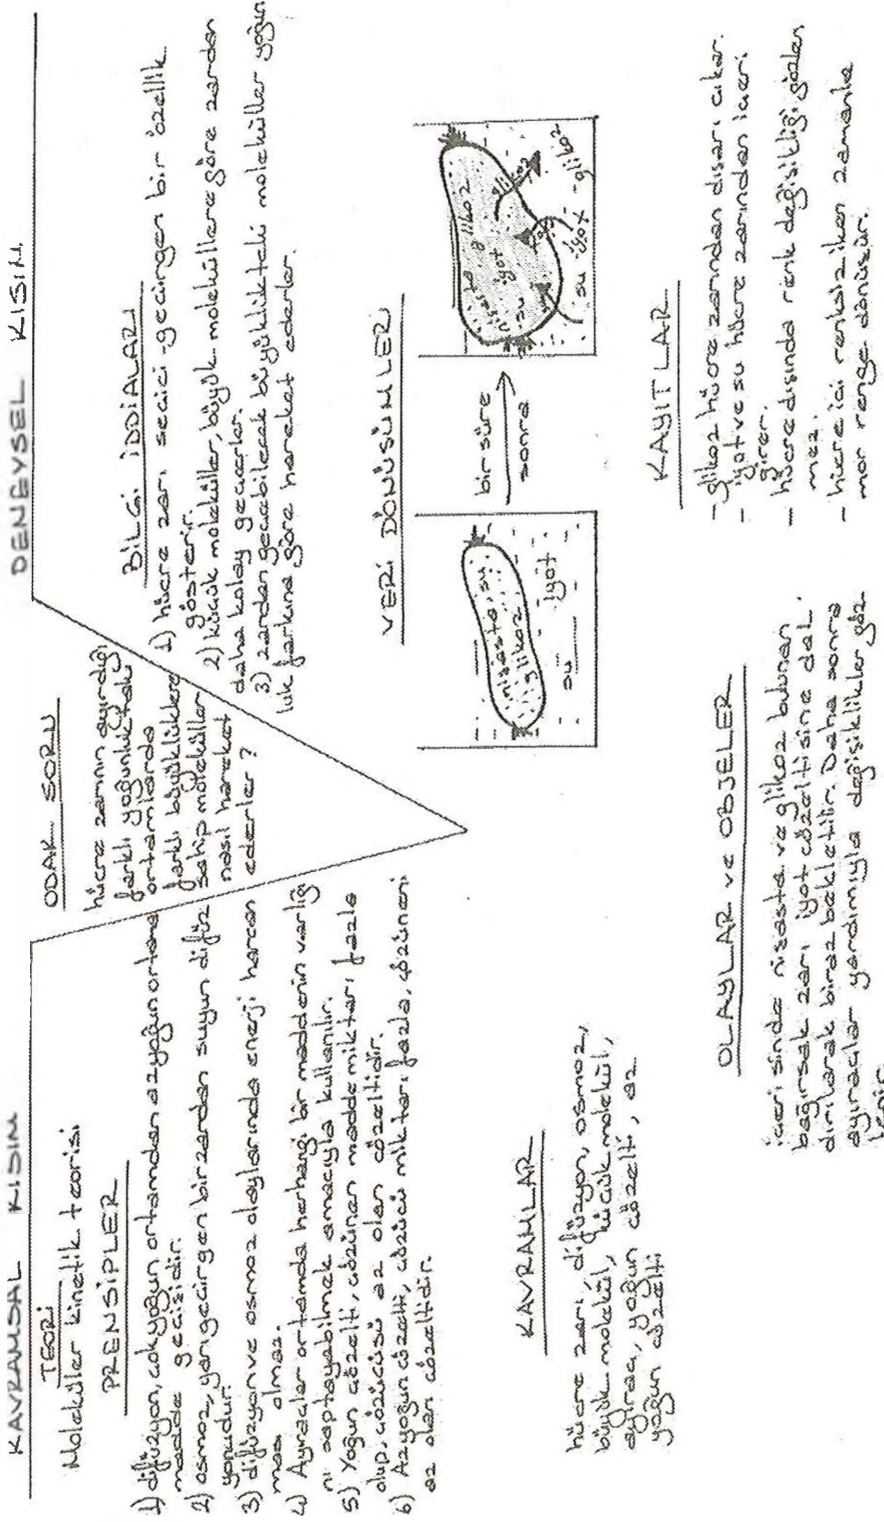 KAVRAMSAL KISIM
TEORİ
Moleküller kinetik teorisi
PRENSİPLER
1) difüzyon, çok yoğun ortamdan az yoğun ortama
madde geçişidir.
2) osmoz, yarı geçirgen bir zardan suyun difüz
yonudur.
3) difüzyon ve osmoz olaylarında enerji harcan
ması olmaz.
4) Ayıraçlar ortamda herhangi bir maddenin varlığı
nı saptayabilmek amacıyla kullanılır.
5) Yoğun çözelti, çözünen madde miktarı fazla
olup, çözücüsü az olan çözeltidir.
6) Az yoğun çözelti, çözücü miktarı fazla, çözüneni
az olan çözeltidir.
KAVRAMLAR
hücre zarı, difüzyon, osmoz,
büyük molekül, küçük molekül,
ayıraç, yoğun çözelti, az
yoğun çözelti
ODAK SORU
hücre zarının ayırdığı
farklı yoğunluktaki
ortamlarda
farklı büyüklüklere
sahip moleküller
nasıl hareket
ederler?
OLAYLAR ve OBJELER
içerisinde nişasta ve glikoz bulunan
bağırsak zarı iyot çözeltisine dal
dırılarak biraz bekletilir. Daha sonra
ayıraçlar yardımıyla değişiklikler göz-
lenir.
DENEYSEL KISIM
BİLGİ İDDİALARI
1) hücre zarı seçici-geçirgen bir özellik
gösterir.
2) küçük moleküller, büyük moleküllere göre zardan
daha kolay geçerler.
3) zardan geçebilecek büyüklükteki moleküller yoğun
luk farkına göre hareket ederler.
VERİ DÖNÜŞÜMLERİ
nişasta, su
glikoz
su iyot
bir süre
sonra
nişasta glikoz
su iyot
glikoz
su iyot glikoz
KAYITLAR
- glikoz hücre zarından dışarı çıkar.
- iyot ve su hücre zarından içeri
girer.
- hücre dışında renk değişikliği gözlen
mez.
- hücre içi renksiz iken zamanla
mor renge dönüşür.